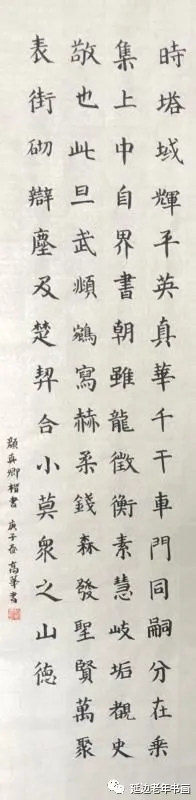 時塔域輝平英真華千干車門同嗣分在乘
集上中自界書朝雖龍徵衡素慧岐垢覩史
敬也此旦武頻鶴寫赫柔錢森發聖賢萬聚
表街砌辯塵及楚契合小莫衆之山德
顏真卿楷書 庚子春 高華書
延边老年书画